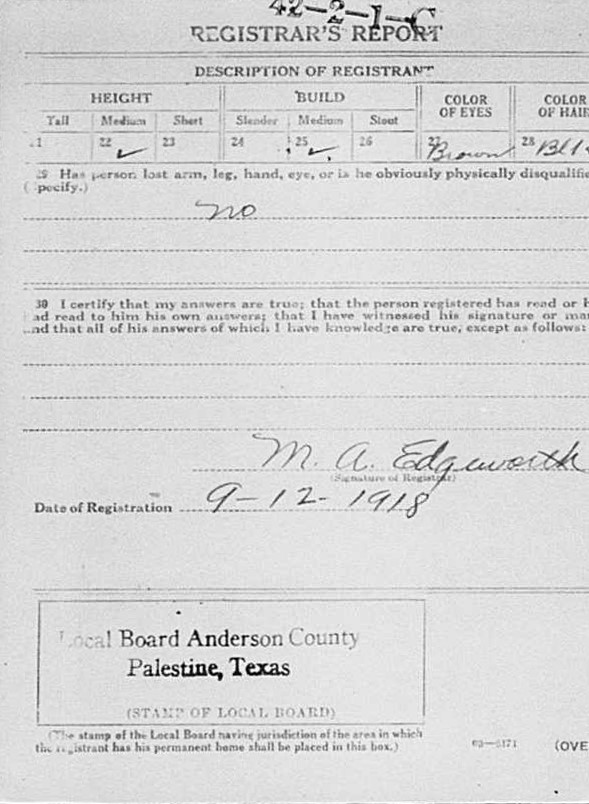 42-2-1-C
REGISTRAR'S REPORT
DESCRIPTION OF REGISTRANT
HEIGHT BUILD COLOR OF EYES COLOR OF HAIR
Tall Medium Short Slender Medium Stout
21 22 ✓ 23 24 25 ✓ 26 27 Brown 28
29 Has person lost arm, leg, hand, eye, or is he obviously physically disqualifie
(specify.)
no
30 I certify that my answers are true; that the person registered has read or h
ad read to him his own answers; that I have witnessed his signature or mar
and that all of his answers of which I have knowledge are true, except as follows:
M. A. Edgeworth
(Signature of Registrar)
Date of Registration 9-12-1918
Local Board Anderson County
Palestine, Texas
(STAMP OF LOCAL BOARD)
(The stamp of the Local Board having jurisdiction of the area in which
the registrant has his permanent home shall be placed in this box.)
03—6171 (OVE